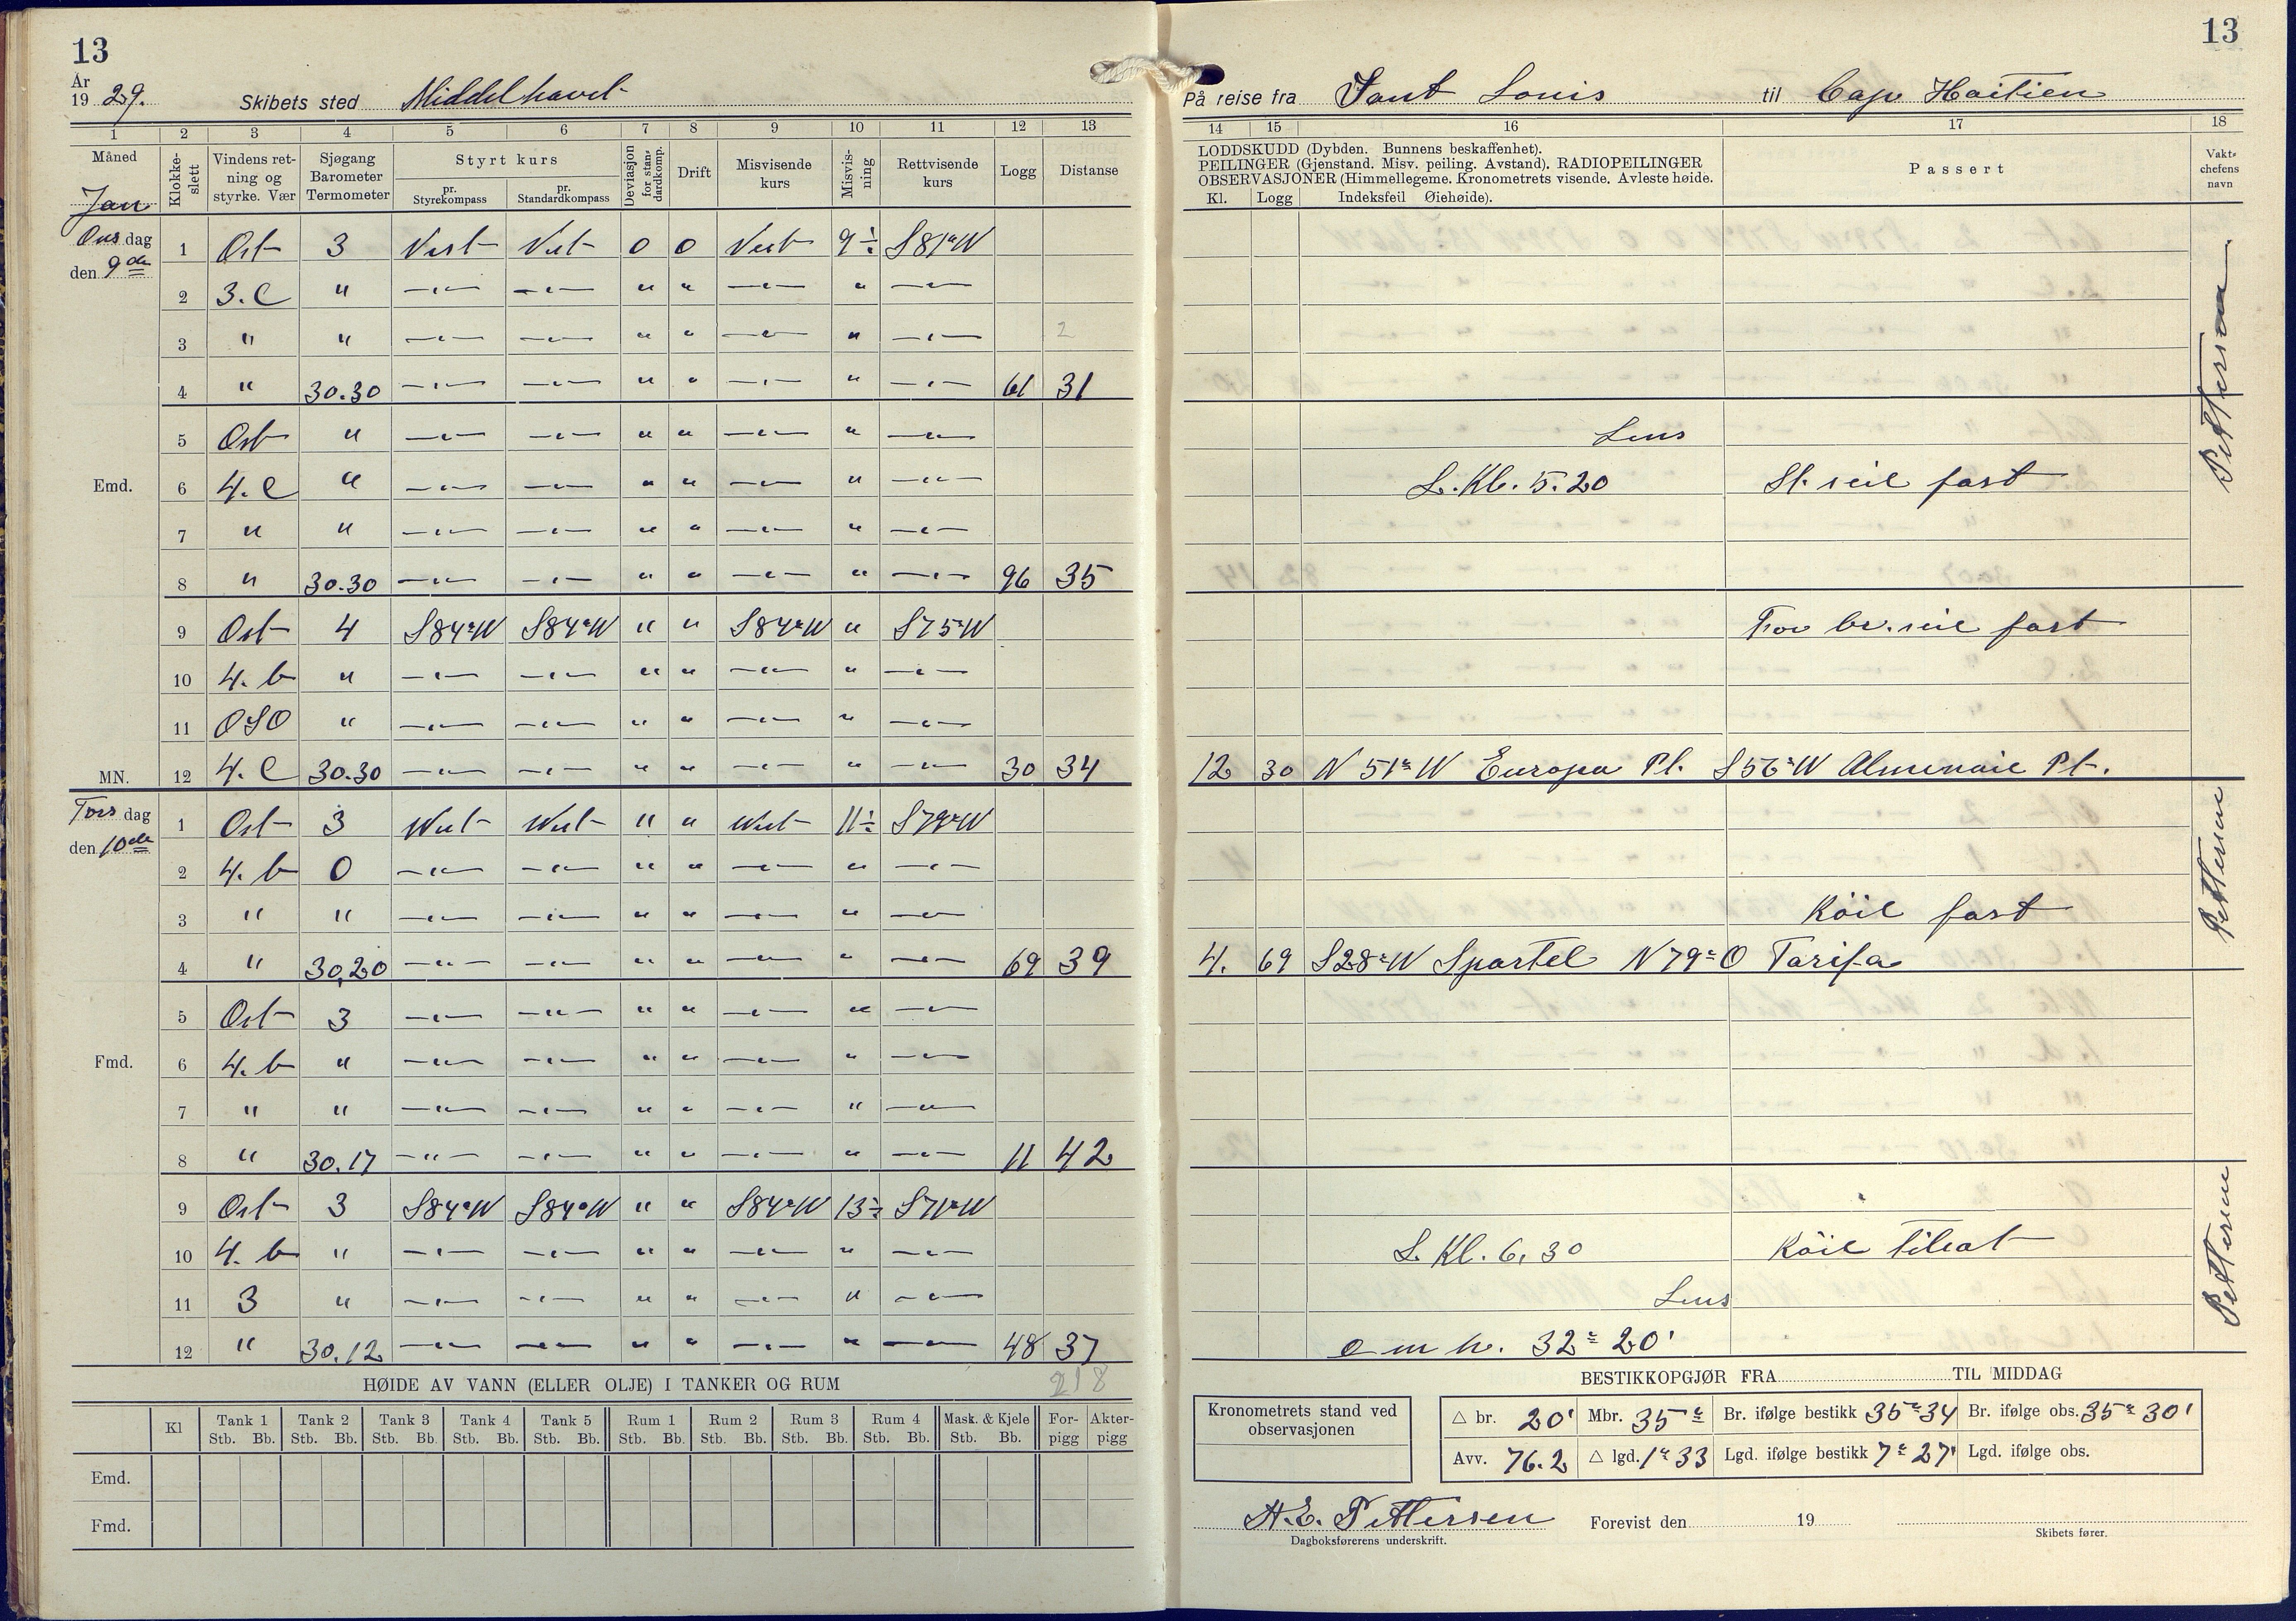 13
År
19 29. Skibets sted Middelhavet
1 2 3 4 5 6 7 8 9 10 11 12 13
Måned Klokke-slett Vindens ret-ning og styrke. Vær Sjøgang Barometer Termometer Styrt kurs pr. Styrekompass pr. Standardkompass Deviasjon for stan-dardkomp. Drift Misvisende kurs Misvis-ning Rettvisende kurs Logg Distanse
Jan
Ons dag
den 9de
1 Ost 3 Vest Vest 0 0 Vest 9 ÷ S 81° W
2 3. C " —"— —"— " " —"— " —"—
3 " " —"— —"— " " —"— " —"— 2
4 " 30.30 —"— —"— " " —"— " —"— 61 31
5 Ost " —"— —"— " " —"— " —"—
Emd. 6 4. C " —"— —"— " " —"— " —"—
7 " " —"— —"— " " —"— " —"—
8 " 30.30 —"— —"— " " —"— " —"— 96 35
9 Ost 4 S 84° W S 84° W " " S 84° W " S 75° W
10 4. b " —"— —"— " " —"— " —"—
11 OSO " —"— —"— " " —"— " —"—
MN. 12 4. C 30.30 —"— —"— " " —"— " —"— 30 34
Tors dag
den 10de
1 Ost 3 West West " " West 11 ÷ S 79° W
2 4. b 0 —"— —"— " " —"— " —"—
3 " " —"— —"— " " —"— " —"—
4 " 30,20 —"— —"— " " —"— " —"— 69 39
5 Ost 3 —"— —"— " " —"— " —"—
Fmd. 6 4. b " —"— —"— " " —"— " —"—
7 " " —"— —"— " " —"— " —"—
8 " 30.17 —"— —"— " " —"— " —"— 11 42
9 Ost 3 S 84° W S 84° W " " S 84° W 13 ÷ S 71° W
10 4. b " —"— —"— " " —"— " —"—
11 3 " —"— —"— " " —"— " —"—
12 " 30.12 —"— —"— " " —"— " —"— 48 37
218
HØIDE AV VANN (ELLER OLJE) I TANKER OG RUM
Kl Tank 1 Tank 2 Tank 3 Tank 4 Tank 5 Rum 1 Rum 2 Rum 3 Rum 4 Mask. & Kjele For-pigg Akter-pigg
Stb. Bb. Stb. Bb. Stb. Bb. Stb. Bb. Stb. Bb. Stb. Bb. Stb. Bb. Stb. Bb. Stb. Bb. Stb. Bb.
Emd.
Fmd.
13
På reise fra Sant Louis til Cap Haitien
14 15 16 17 18
LODDSKUDD (Dybden. Bunnens beskaffenhet).
PEILINGER (Gjenstand. Misv. peiling. Avstand). RADIOPEILINGER
OBSERVASJONER (Himmellegeme. Kronometrets visende. Avleste høide.
Kl. Logg Indeksfeil Øiehøide).
Passert
Vakt-chefens navn
Pettersen
Lens
L. Kl. 5.20 St. seil fast
For br. seil fast
12 30 N 51° W Europa Pt. S 56° W Almenaie Pt.
Pettersen
Röil fast
4. 69 S 28° W Spartel N 79° O Tarifa
Pettersen
L. Kl. 6.30 Röil tilsat
Lens
o m h. 32° 20'
BESTIKKOPGJØR FRA TIL MIDDAG
Kronometrets stand ved observasjonen
△ br. 20' Mbr. 35° Br. ifølge bestikk 35° 34 Br. ifølge obs. 35° 30'
Avv. 76.2 △ lgd. 1° 33 Lgd. ifølge bestikk 7° 27' Lgd. ifølge obs.
H. E. Pettersen Forevist den 19
Dagboksførerens underskrift. Skibets fører.